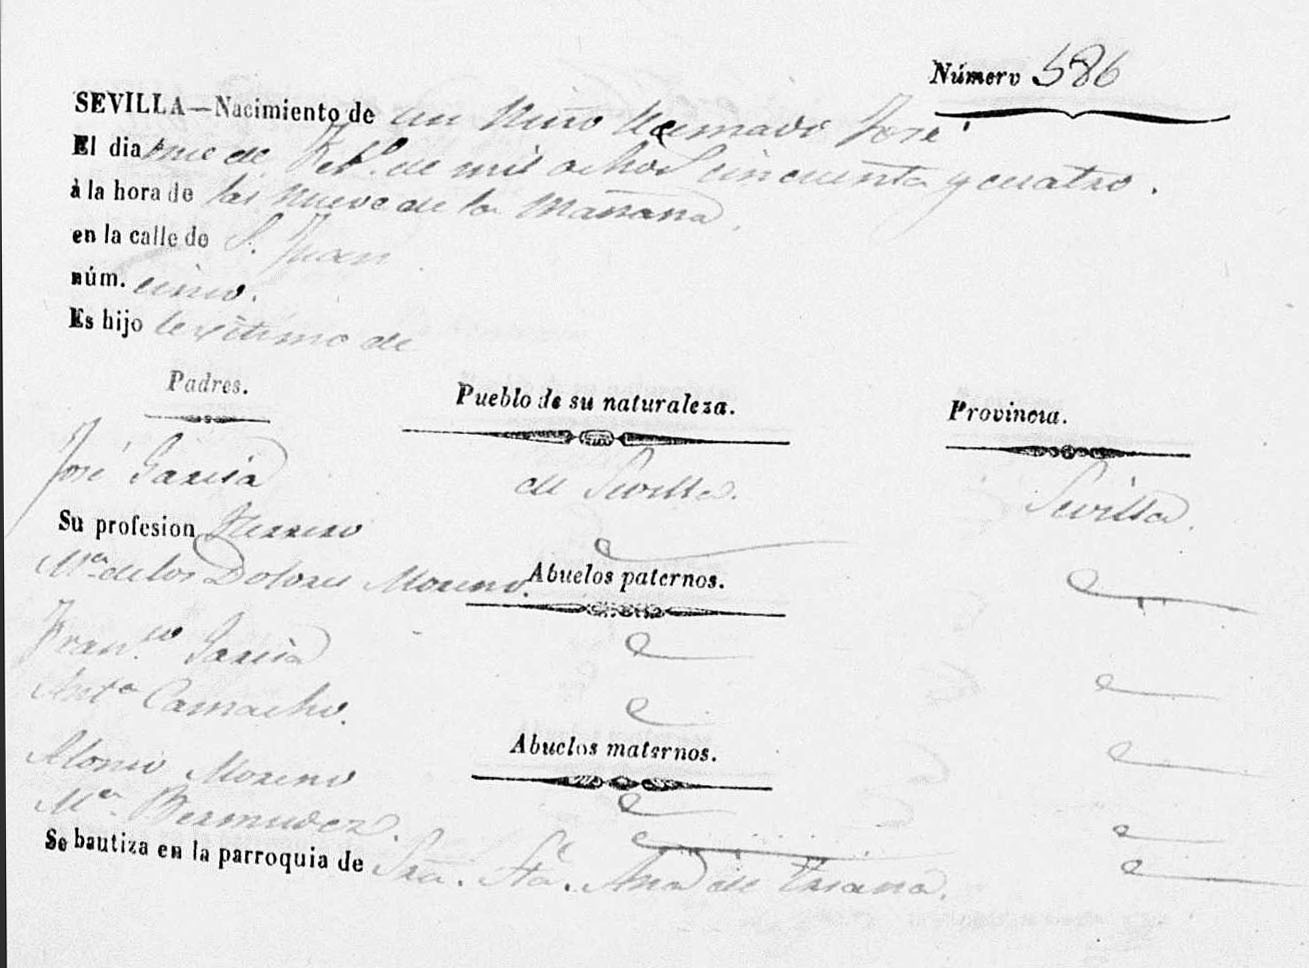 Número 586
SEVILLA—Nacimiento de un Niño llamado José
El dia once de Feb.º de mil ochos cincuenta y cuatro.
á la hora de las nueve de la mañana,
en la calle de S. Juan
núm. cinco.
Es hijo lexitimo de
Padres. Pueblo de su naturaleza. Provincia.
José Garcia de Sevilla. Sevilla.
Su profesion Herrero
M.ª de los Dolores Moreno.
Abuelos paternos.
Fran.co Garcia
Ant.ª Camacho.
Abuelos maternos.
Alonso Moreno
M.ª Bermudez.
Se bautiza en la parroquia de Sra. Sta. Ana de Triana.